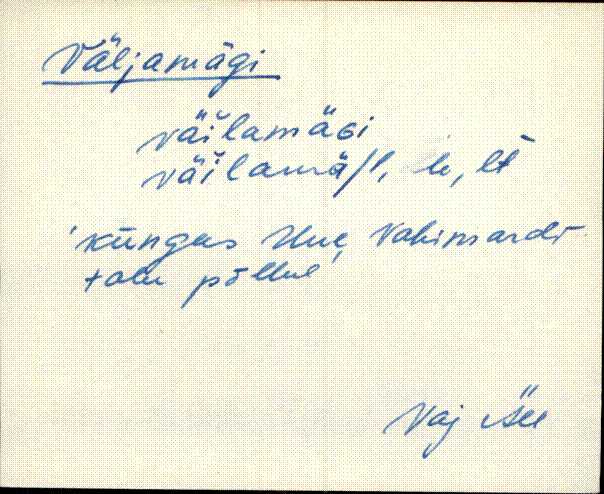 Väljamägi
väi̮lamäGi
väi̮lamä/l, le, lt
'küngas Uue Vahimardi
talu põllul'
Vaj